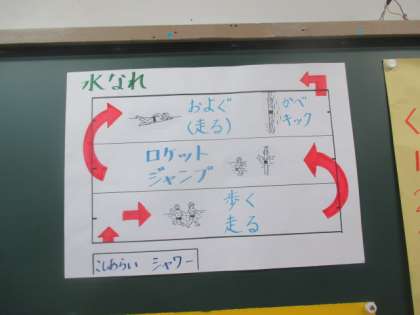 水なれ
およぐ
(走る)
かべ
キック
ロケット
ジャンプ
歩く
走る
こしあらい シャワー